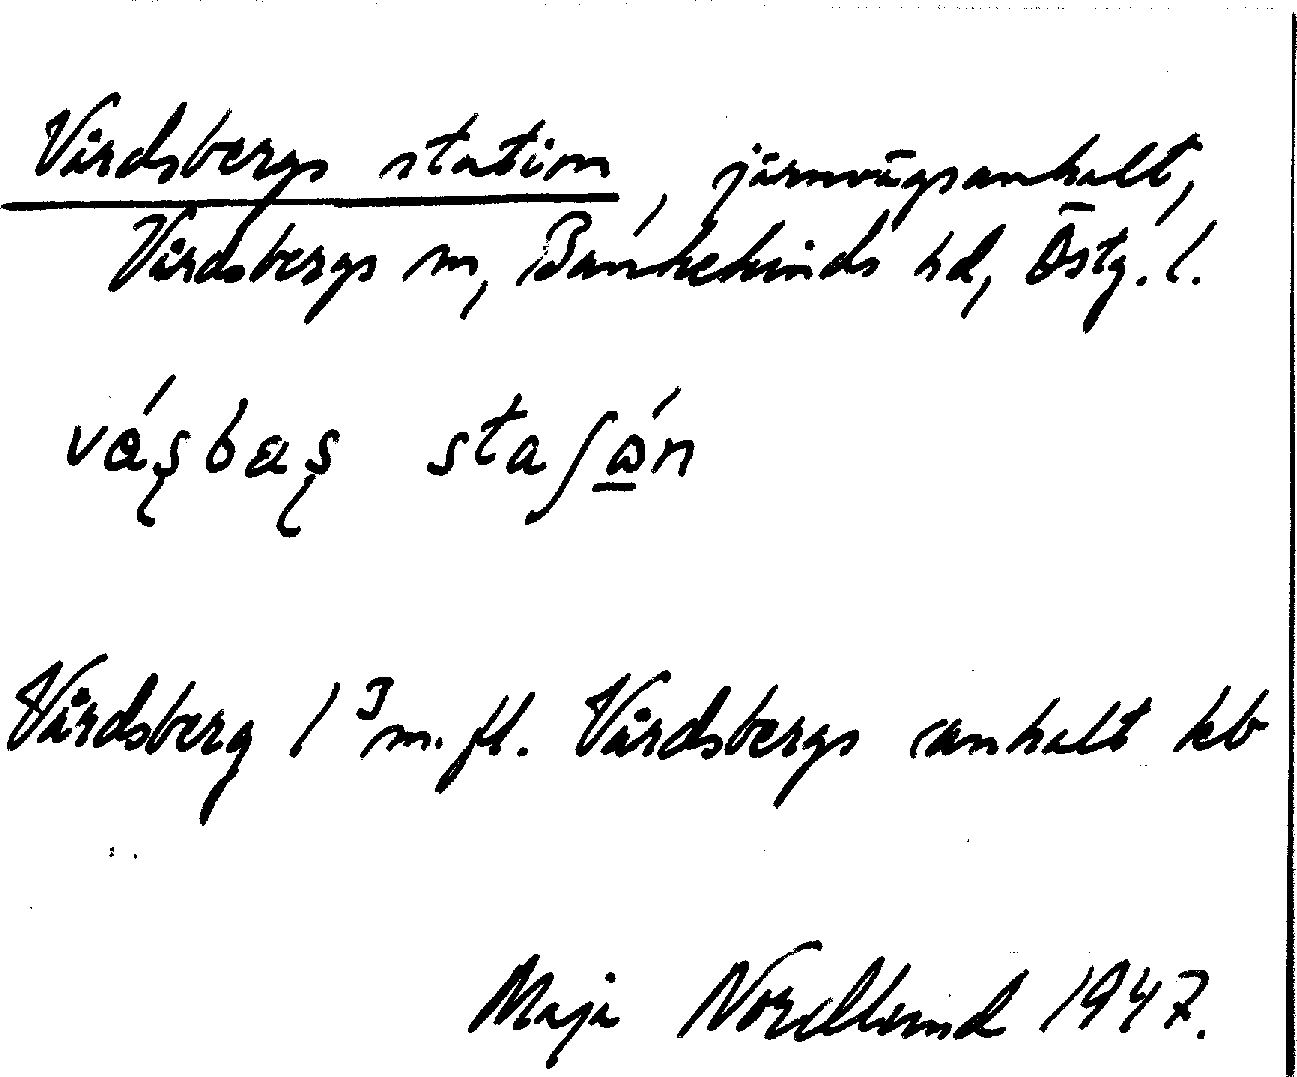 Vårdsbergs station, järnvägsanhalt,
Vårdsbergs sn, Bankekinds hd, Östg. l.
Vårdsberg 1³ m. fl. Vårdsbergs anhalt kb
Maja Nordlund 1947.